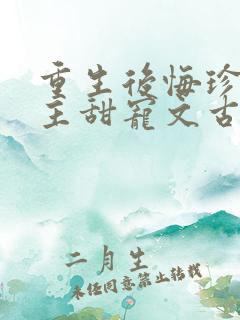 重生後悔珍
主甜寵文古
二月生
未經同意禁止轉載